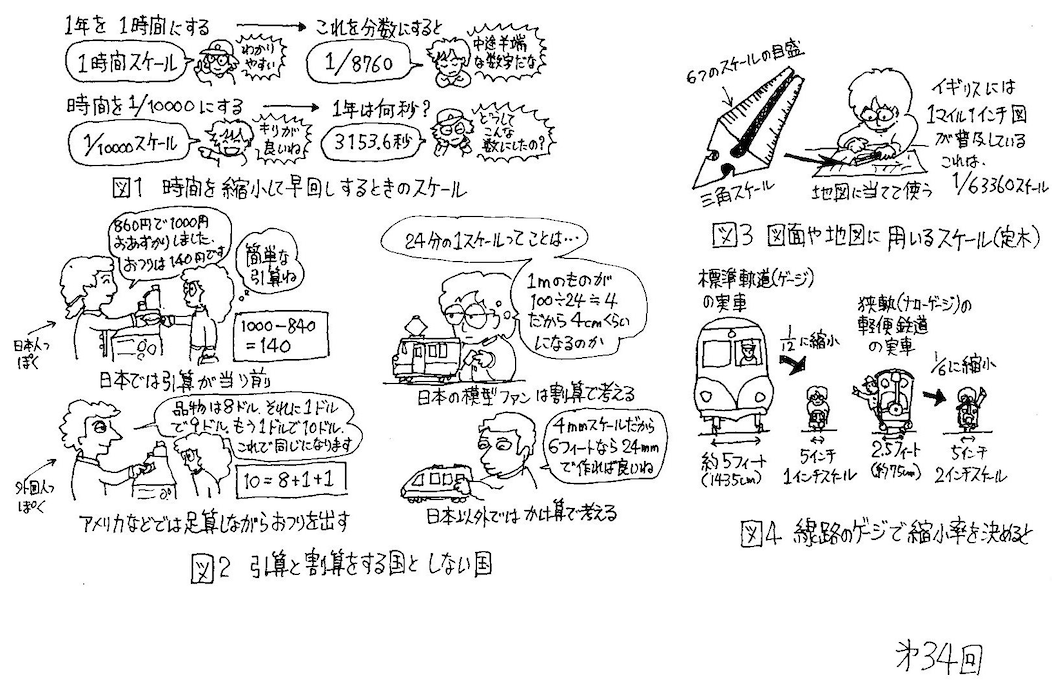 1年を1時間にする
これを分数にすると
1時間スケール
わかり
やすい
1/8760
中途半端
な数字だな
時間を1/10000にする
1年は何秒?
1/10000スケール
キリが
良いね
3153.6秒
どうして
こんな
数にしたの?
図1 時間を縮小して早回しするときのスケール
860円で1000円
おあずかりしました.
おつりは140円です
簡単な
引算ね
日本人っ
ぽく
1000-840
=140
日本では引算が当り前
品物は8ドル.それに1ドル
で9ドル.もう1ドルで10ドル.
これで同じになります
外国人っ
ぽく
10=8+1+1
アメリカなどでは足算しながらおつりを出す
24分の1スケールってことは…
1mのものが
100÷24≒4
だから4cmくらい
になるのか
日本の模型ファンは割算で考える
4mmスケールだから
6フィートなら24mm
で作れば良いね
日本以外ではかけ算で考える
図2 引算と割算をする国としない国
6つのスケールの目盛
三角スケール
地図に当てて使う
イギリスには
1マイル1インチ図
が普及している
これは.
1/63360スケール
図3 図面や地図に用いるスケール(定木)
標準軌道(ゲージ)
の実車
1/12に縮小
約5フィート
(1435cm)
5インチ
1インチスケール
狭軌(ナローゲージ)の
軽便鉄道
の実車
1/6に縮小
2.5フィート
(約75cm)
5インチ
2インチスケール
図4 線路のゲージで縮小率を決めると
第34回